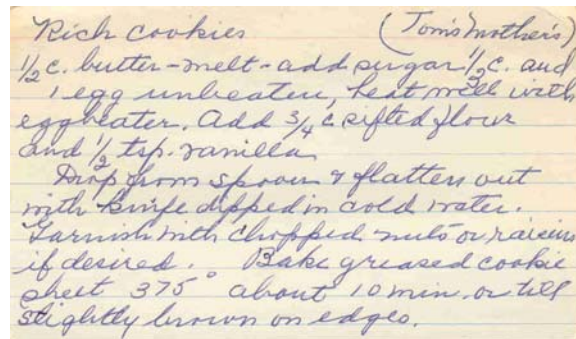 Rich cookies (Tom's Mother's)
1/2 c. butter-melt-add sugar 1/2 c. and
1 egg unbeaten, beat well with
eggbeater. Add 3/4 c sifted flour
and 1/2 tsp. vanilla
Drop from spoon & flatten out
with knife dipped in cold water.
Garnish with chopped nuts or raisins
if desired. Bake greased cookie
sheet 375° about 10 min. or till
slightly brown on edges.